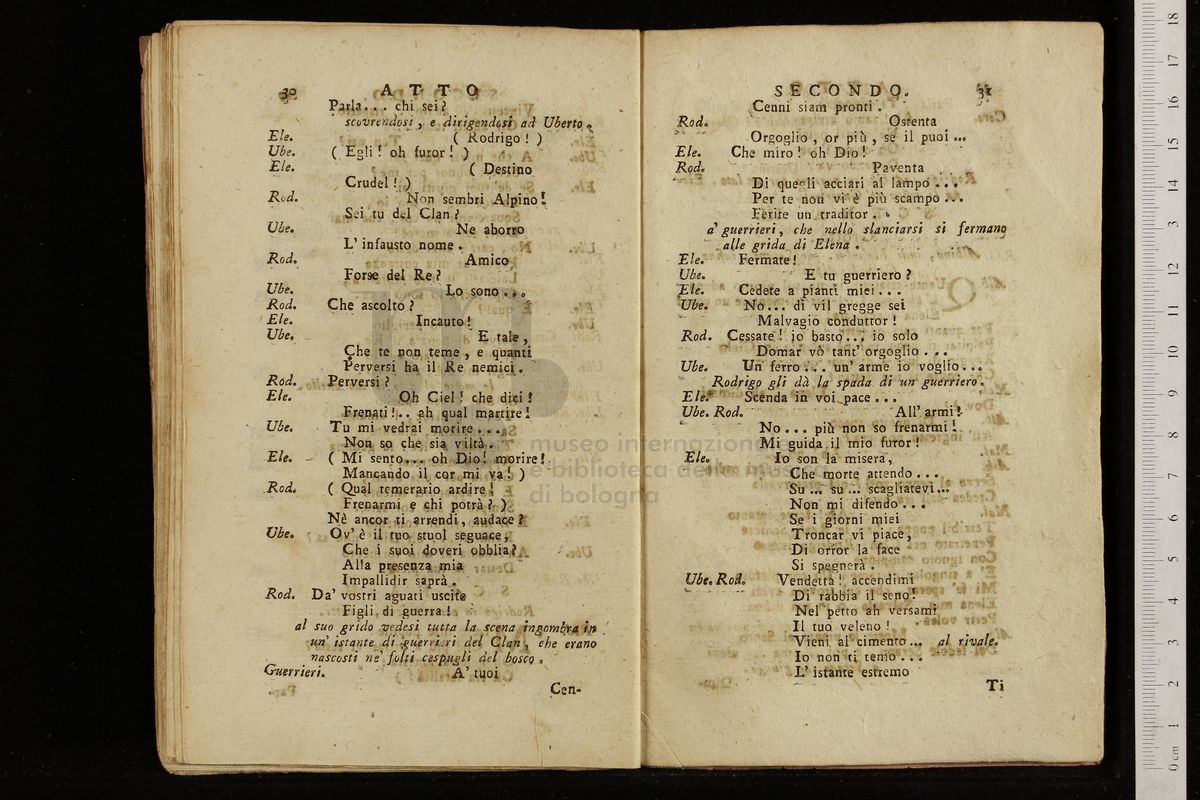 30 ATTO
Parla... chi sei?
scovrendosi, e dirigendosi ad Uberto.
Ele. ( Rodrigo! )
Ube. ( Egli! oh furor! )
Ele. ( Destino
Crudel! )
Rod. Non sembri Alpino!
Sei tu del Clan?
Ube. Ne aborro
L' infausto nome.
Rod. Amico
Forse del Re?
Ube. Lo sono...
Rod. Che ascolto?
Ele. Incauto!
Ube. E tale,
Che te non teme, e quanti
Perversi ha il Re nemici.
Rod. Perversi?
Ele. Oh Ciel! che dici!
Frenati!.. ah qual martire!
Ube. Tu mi vedrai morire...
Non so che sia viltà.
Ele. ( Mi sento... oh Dio! morire!
Mancando il cor mi va! )
Rod. ( Qual temerario ardire!
Frenarmi e chi potrà? )
Nè ancor ti arrendi, audace?
Ube. Ov' è il tuo stuol seguace,
Che i suoi doveri obblia?
Alla presenza mia
Impallidir saprà.
Rod. Da' vostri aguati uscite
Figli di guerra!
al suo grido vedesi tutta la scena ingombra in
un' istante di guerrieri del Clan, che erano
nascosti ne' folti cespugli del bosco.
Guerrieri. A' tuoi
Cen-
SECONDO. 31
Cenni siam pronti.
Rod. Ostenta
Orgoglio, or più, se il puoi...
Ele. Che miro! oh Dio!
Rod. Paventa
Di quegli acciari al lampo...
Per te non vi è più scampo...
Ferite un traditor.
a' guerrieri, che nello slanciarsi si fermano
alle grida di Elena.
Ele. Fermate!
Ube. E tu guerriero?
Ele. Cedete a pianti miei...
Ube. No... di vil gregge sei
Malvagio conduttor!
Rod. Cessate! io basto... io solo
Domar vò tant' orgoglio...
Ube. Un ferro... un' arme io voglio...
Rodrigo gli dà la spada di un guerriero.
Ele. Scenda in voi pace...
Ube. Rod. All' armi!
No... più non so frenarmi!
Mi guida il mio furor!
Ele. Io son la misera,
Che morte attendo...
Su... su... scagliatevi...
Non mi difendo...
Se i giorni miei
Troncar vi piace,
Di orror la face
Si spegnerà.
Ube. Rod. Vendetta! accendimi
Di rabbia il seno!
Nel petto ah versami
Il tuo veleno!
Vieni al cimento... al rivale.
Io non ti temo...
L' istante estremo
Ti
museo internazionale
e biblioteca della musica
di bologna
18
17
16
15
14
13
12
11
10
9
8
7
6
5
4
3
2
1
0 cm